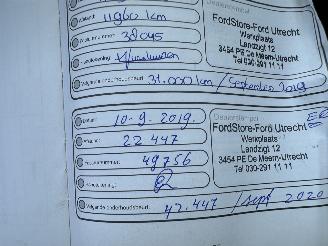 11960 km
38045
Volgende onderhoudsbeurt: 31.000 km / September 2019
Dealerstempel
FordStore-Ford Utrecht
Werkplaats
Landzigt 12
3454 PE De Meern-Utrecht
Tel 030-291 11 11
Datum: 10-9-2019
22447
49756
Handtekening:
Volgende onderhoudsbeurt: 42.447 / sept 2020
Dealerstempel
FordStore-Ford Utrecht
Werkplaats
Landzigt 12
3454 PE De Meern-Utrecht
Tel 030-291 11 11